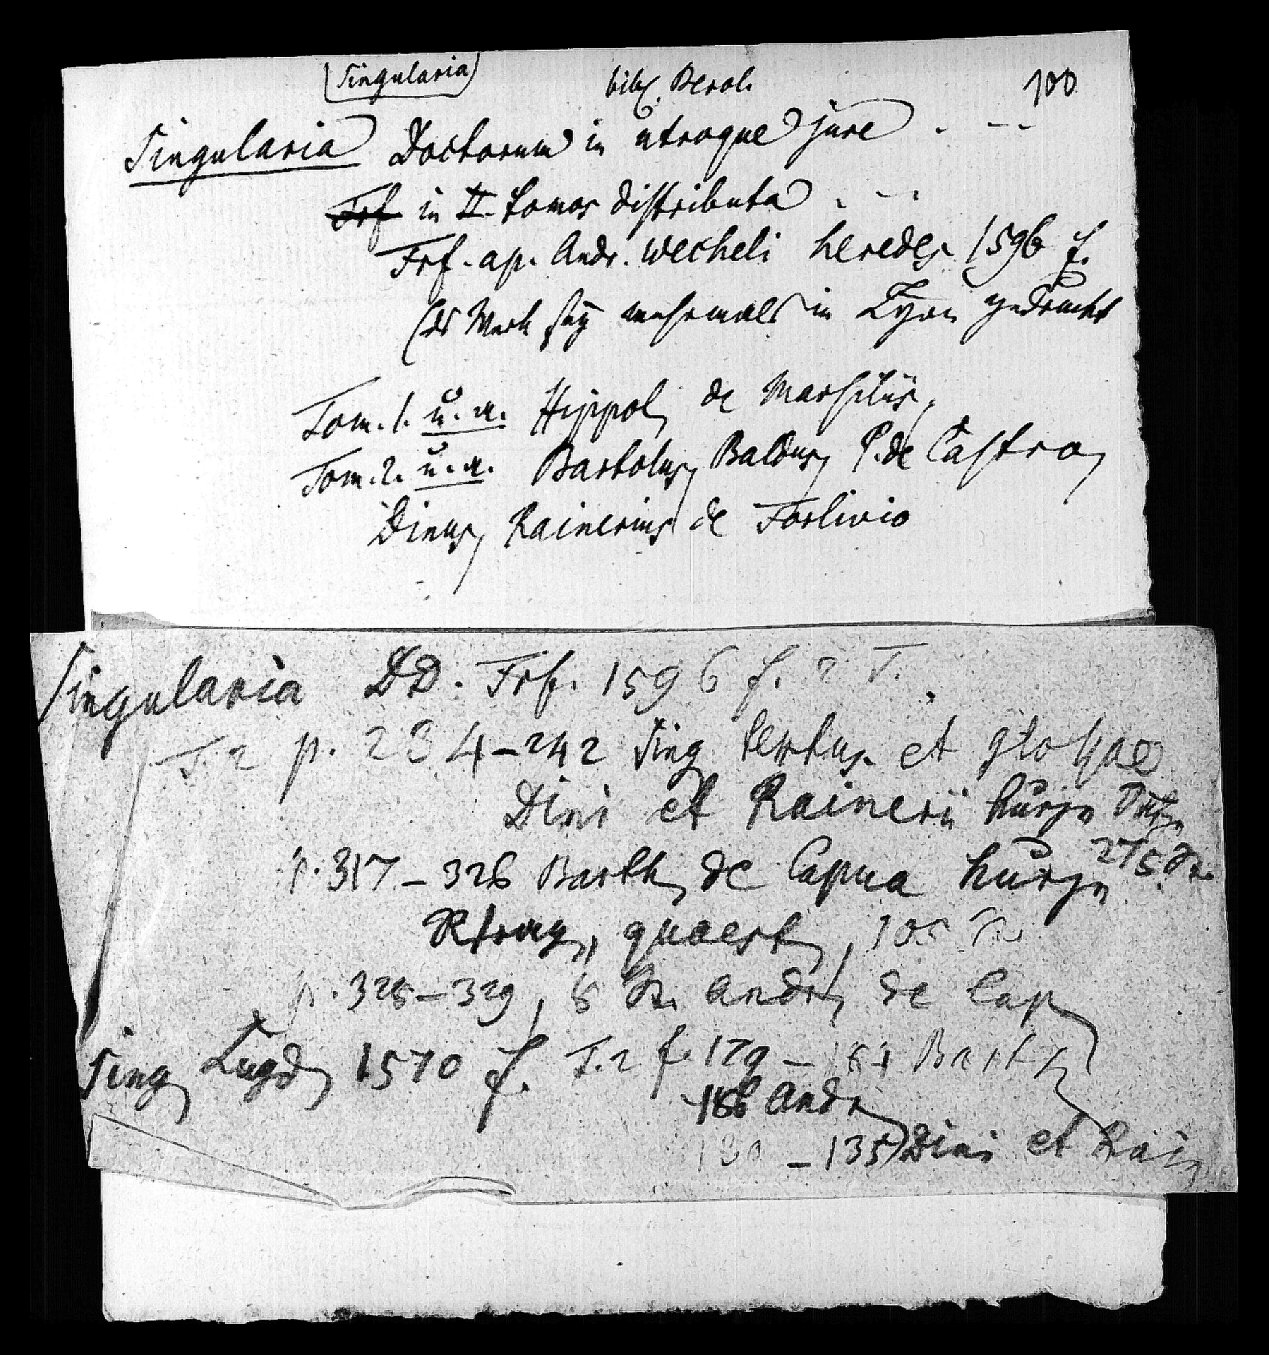 (Singularia) bibl. Berol. 100
Singularia Doctorum in utroque jure . - - -
Frf in II. tomos distributa . - -
Frf. ap. Andr. Wecheli heredes 1596 f.
(ds Werk sey mehrmals in Lyon gedruckt
Tom. 1. u. a. Hippol. de Marsiliis,
Tom. 2. u. a. Bartolus, Baldus, P. de Castro,
Dinus, Rainerius de Forlivio
Singularia DD. Frf. 1596 f. 2 T.
T. 2 p. 234-242 Sing. textus. et glossae
Dini et Rainerii kurze
275.
p. 317-326 Barth. de Capua kurze
quaest., 105
p. 328-329, 8 Andr. de Cap.
Sing. Lugd. 1570 f. T. 2 f. 179 - Barth.
186 Andr.
130 - 135 Dini et Rain.